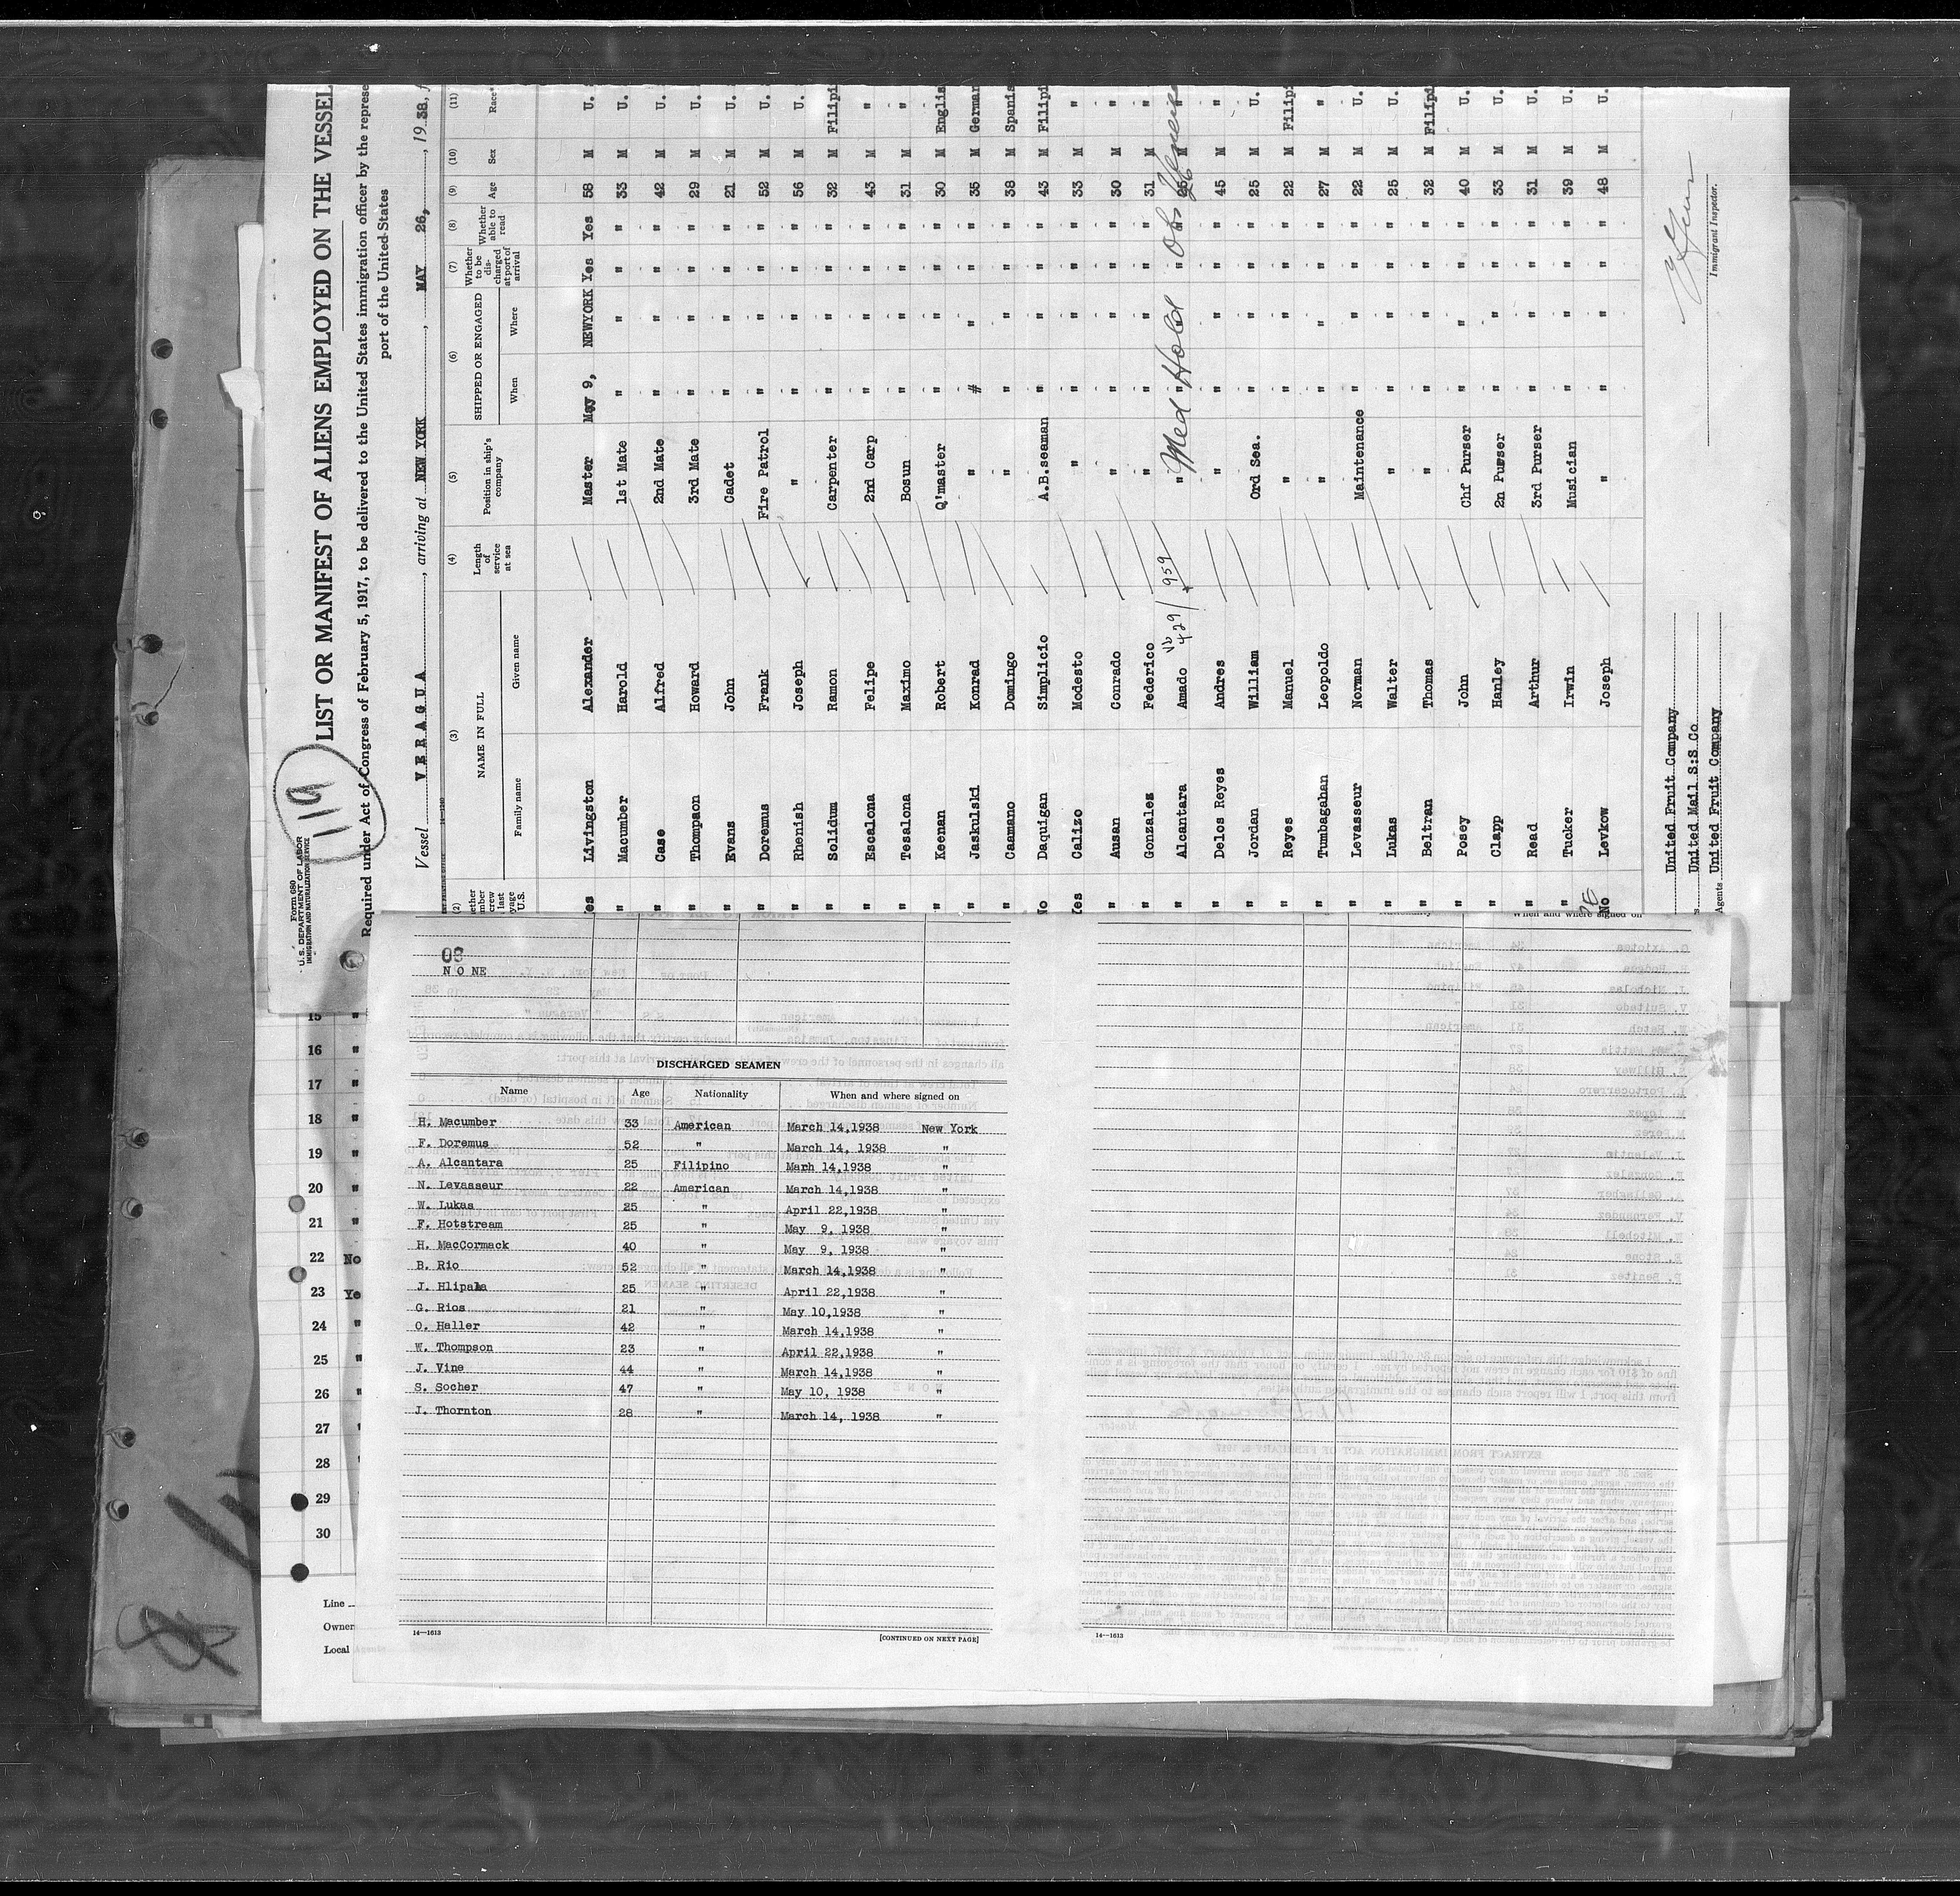 Form 680
U. S. DEPARTMENT OF LABOR
IMMIGRATION AND NATURALIZATION SERVICE
119
LIST OR MANIFEST OF ALIENS EMPLOYED ON THE VESSEL
Required under Act of Congress of February 5, 1917, to be delivered to the United States immigration officer by the represe
port of the United States
Vessel VERAGUA, arriving at NEW YORK, MAY 26, 1938, f
(2) (3) (4) (5) (6) (7) (8) (9) (10) (11)
NAME IN FULL Length of service at sea Position in ship's company SHIPPED OR ENGAGED Whether to be discharged at port of arrival Whether able to read Age Sex Race*
Family name Given name When Where
es Livingston Alexander Master May 9, NEWYORK Yes Yes 58 M U.
" Macumber Harold 1st Mate " " " " 33 M U.
" Case Alfred 2nd Mate " " " " 42 M U.
" Thompson Howard 3rd Mate " " " " 29 M U.
" Evans John Cadet " " " " 21 M U.
" Doremus Frank Fire Patrol " " " " 52 M U.
" Rhenish Joseph " " " " " 56 M U.
" Solidum Ramon Carpenter " " " " 32 M Filipi
" Escalona Felipe 2nd Carp " " " " 43 M "
" Tesalona Maximo Bosun " " " " 31 M "
" Keenan Robert Q'master " " " " 30 M Englis
" Jaskulski Konrad " # " " " 35 M German
" Caamano Domingo " " " " " 38 M Spanis
No Daquigan Simplicio A.B.seaman " " " " 43 M Filipi
Yes Calizo Modesto " " " " " 33 M "
" Ausan Conrado " " " " " 30 M "
" Gonzalez Federico " " " " " 31 M "
" Alcantara Amado 429/959 " Med Hold Obs 25 M "
" Delos Reyes Andres " " " " " 45 M "
" Jordan William Ord Sea. " " " " 25 M U.
" Reyes Manuel " " " " " 22 M Filipi
" Tumbagahan Leopoldo " " " " " 27 M "
" Levasseur Norman Maintenance " " " " 22 M U.
" Lukas Walter " " " " " 25 M U.
" Beltran Thomas " " " " " 32 M Filipi
" Posey John Chf Purser " " " " 40 M U.
" Clapp Hanley 2n Purser " " " " 33 M U.
" Read Arthur 3rd Purser " " " " 31 M U.
" Tucker Irwin Musician " " " " 39 M U.
No Levkow Joseph " " " " " 48 M U.
United Fruit Company
United Mail S:S Co
Agents United Fruit Company
Immigrant Inspector.
NONE
DISCHARGED SEAMEN
Name Age Nationality When and where signed on
H. Macumber 33 American March 14,1938 New York
F. Doremus 52 " March 14, 1938 "
A. Alcantara 25 Filipino Marh 14,1938 "
N. Levasseur 22 American March 14,1938 "
W. Lukas 25 " April 22,1938 "
F. Hotstream 25 " May 9, 1938 "
H. MacCormack 40 " May 9, 1938 "
B. Rio 52 " March 14,1938 "
J. Hlipala 25 " April 22,1938 "
G. Rios 21 " May 10,1938 "
O. Haller 42 " March 14,1938 "
W. Thompson 23 " April 22,1938 "
J. Vine 44 " March 14,1938 "
S. Socher 47 " May 10, 1938 "
J. Thornton 28 " March 14, 1938 "
14—1613
[CONTINUED ON NEXT PAGE]
When and where signed on
14—1613
15 "
16 "
17 "
18 "
19 "
20 "
21 "
22 No
23 Ye
24 "
25 "
26 "
27 "
28
29
30
Line
Owner
Local Agents